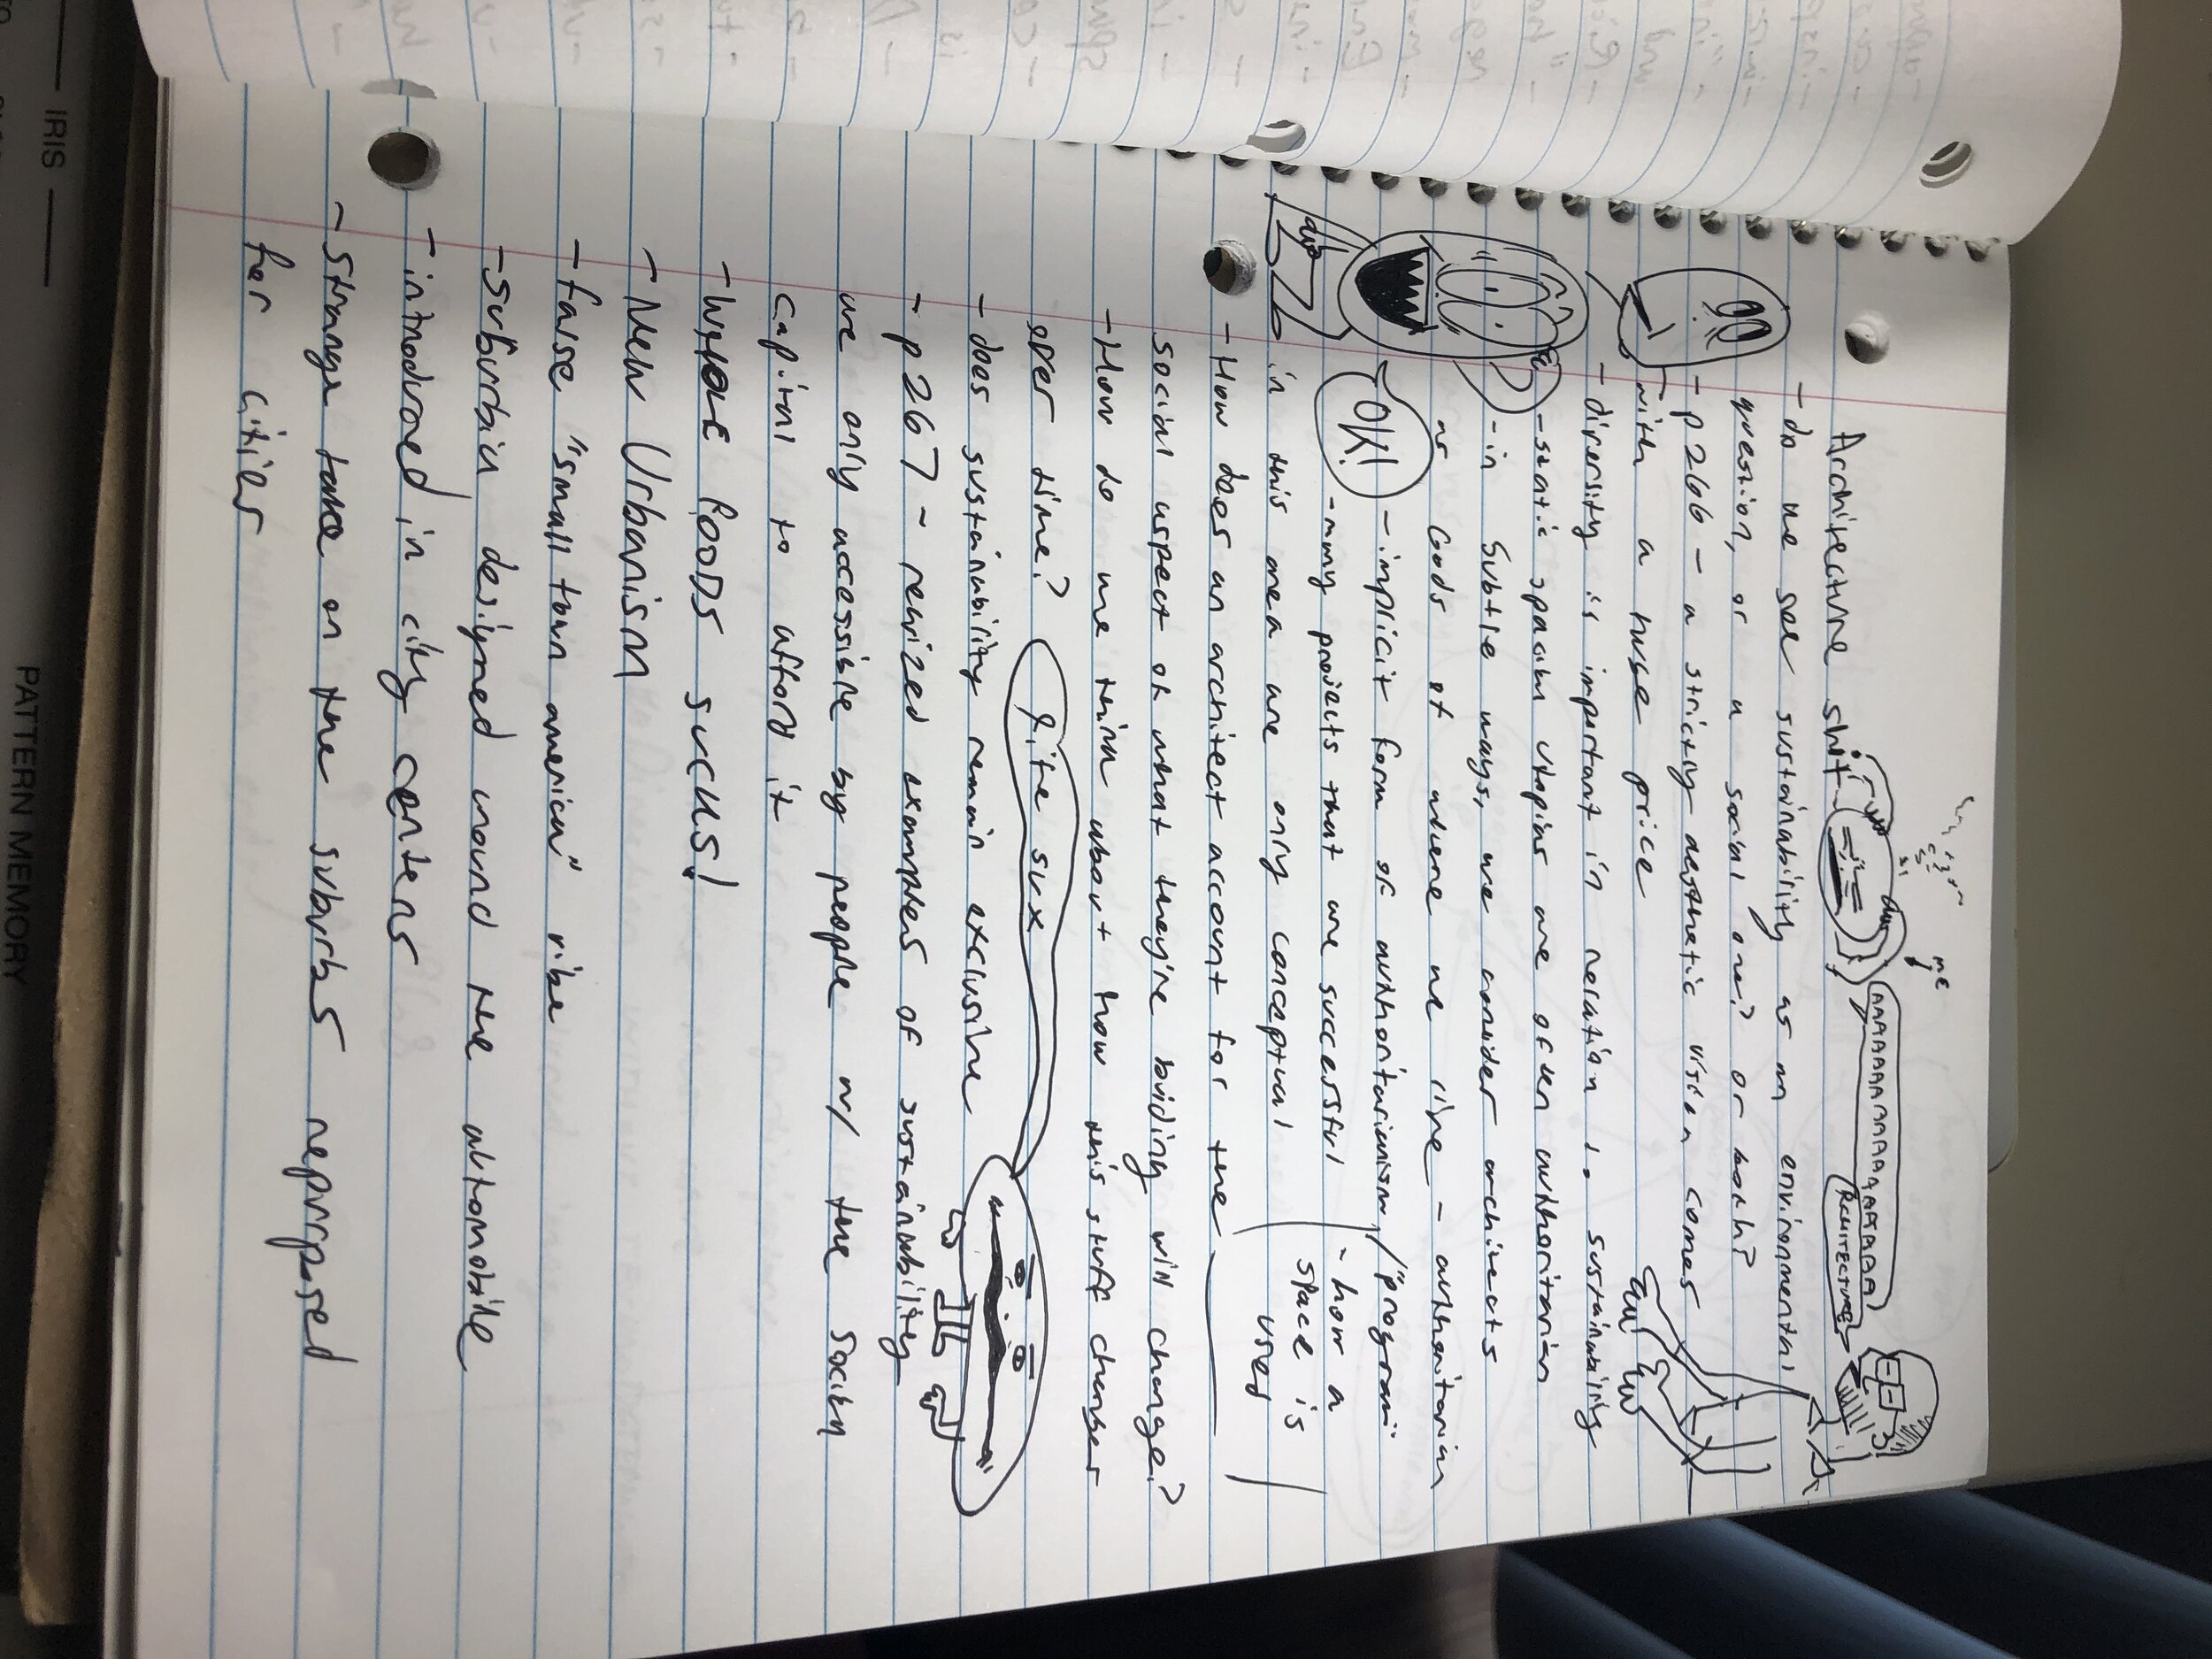 Architecture shit
me
AAAAAAAAAAAAAAAAAAAAA
ARCHITECTURE
- do we see sustainability as an environmental
question, or a social one? or both?
- p266 - a strictly aesthetic vision comes
with a huge price
- diversity is important in relation to sustainability
- static spatial utopias are often authoritarian
- in subtle ways, we consider architects
as Gods of where we live - authoritarian
- implicit form of authoritarianism / "program"
OK!
- many projects that are successful
in this area are only conceptual
- how a
space is
used
- How does an architect account for the
social aspect of what they're building will change?
- How do we think about how this stuff changes
over time?
life sux
- does sustainability remain exclusive
- p267 - realized examples of sustainability
are only accessible by people w/ the social
capital to afford it
- WHOLE FOODS SUCKS!
- New Urbanism
- false "small town america" vibe
- suburbia designed around the automobile
- introduced in city centers
- strange take on the suburbs repurposed
for cities
IRIS
PATTERN MEMORY